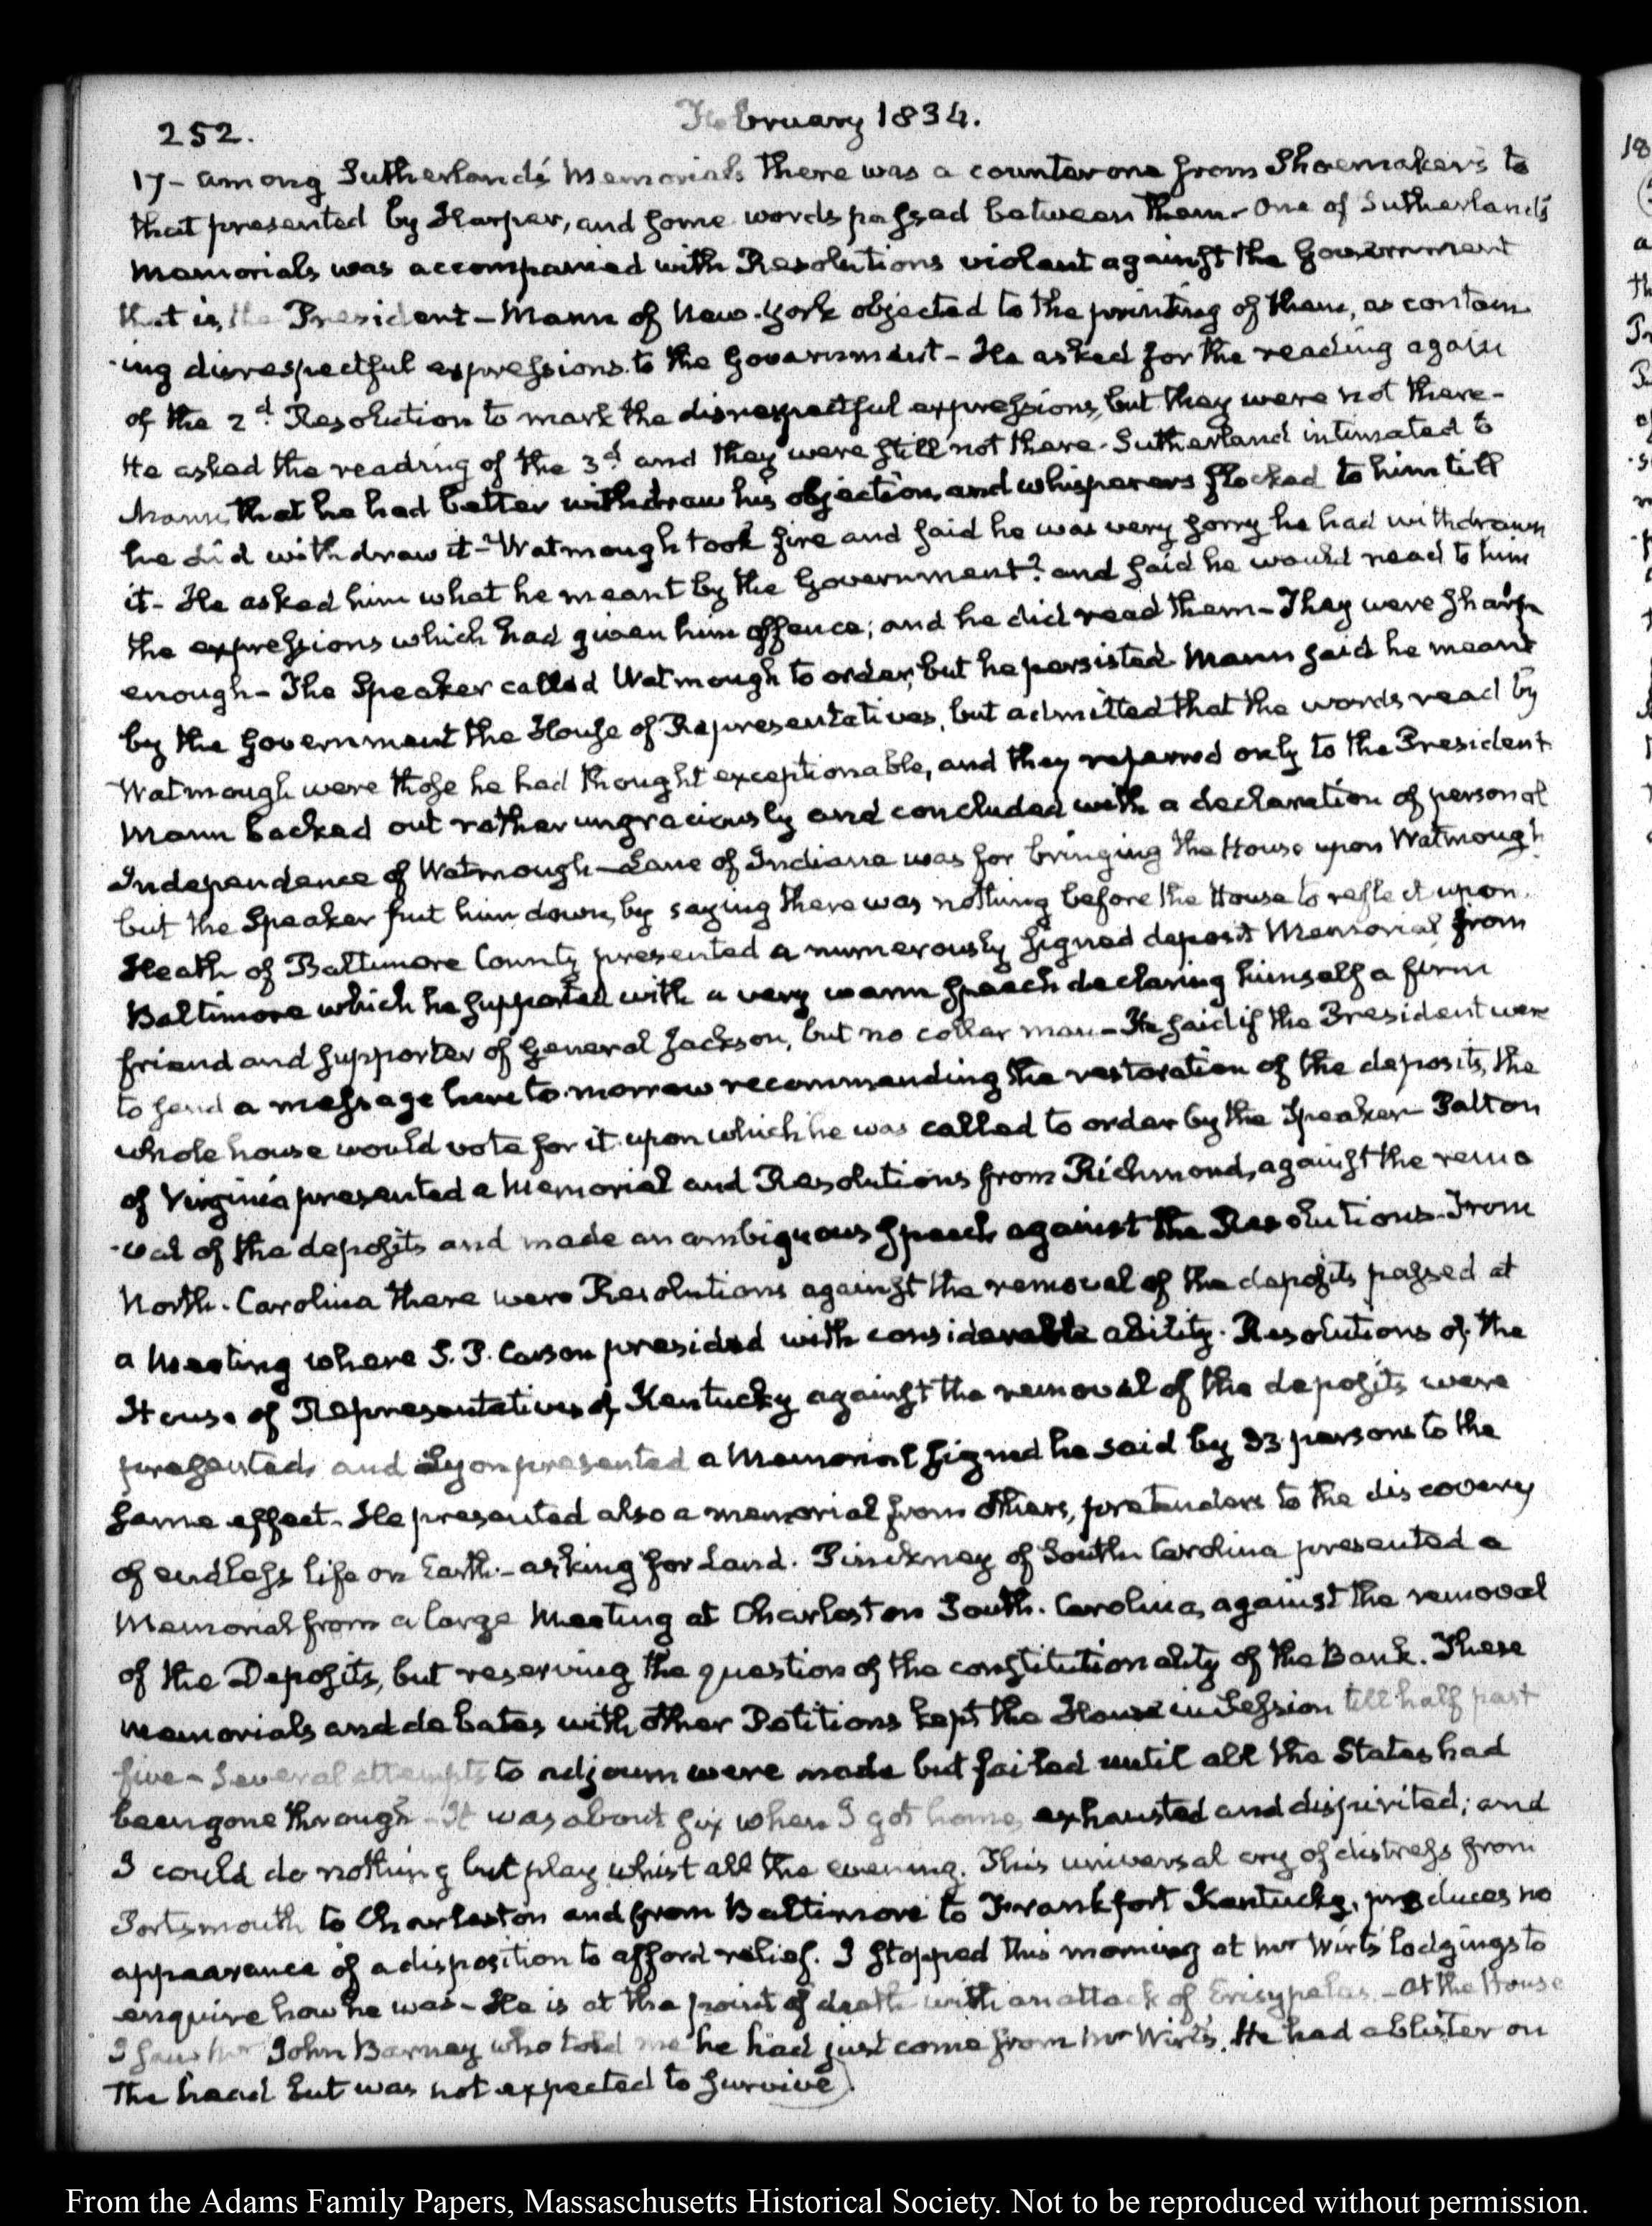 252.
February 1834.
17- Among Sutherland's Memorials there was a counter one from Shoemakers to
that presented by Harper, and some words passed between them- One of Sutherland's
Memorials was accompanied with Resolutions violent against the Government
that is, the President- Mann of New-York objected to the printing of them, as contain
-ing disrespectful expressions to the Government- He asked for the reading again
of the 2d. Resolution to mark the disrespectful expressions, but they were not there-
He asked the reading of the 3d and they were still not there- Sutherland intimated to
Mann, that he had better withdraw his objection, and whisperers flocked to him till
he did withdraw it- Watmough took fire and said he was very sorry he had withdrawn
it- He asked him what he meant by the Government? and said he would read to him
the expressions which had given him offence; and he did read them- They were sharp
enough- The Speaker called Watmough to order, but he persisted- Mann said he meant
by the Government the House of Representatives, but admitted that the words read by
Watmough were those he had thought exceptionable, and they referred only to the President-
Mann backed out rather ungraciously and concluded with a declaration of personal
Independence of Watmough- Lane of Indiana was for bringing the House upon Watmough
but the Speaker put him down, by saying there was nothing before the House to reflect upon.
Heath of Baltimore County presented a numerously signed deposit Memorial from
Baltimore which he supported with a very warm speech declaring himself a firm
friend and supporter of General Jackson, but no collar man- He said if the President were
to send a message here to-morrow recommending the restoration of the deposits, the
whole house would vote for it- upon which he was called to order by the Speaker- Patton
of Virginia presented a Memorial and Resolutions from Richmond, against the remo
-val of the deposits and made an ambiguous speech against the Resolutions- From
North-Carolina there were Resolutions against the removal of the deposits passed at
a Meeting where S. P. Carson presided with considerable ability. Resolutions of the
House of Representatives of Kentucky against the removal of the deposits were
presented, and Lyon presented a Memorial signed he said by 33 persons to the
same effect. He presented also a memorial from others, pretenders to the discovery
of endless life on Earth- asking for Land. Pinckney of South Carolina presented a
Memorial from a large Meeting at Charleston South-Carolina, against the removal
of the Deposits, but reserving the question of the constitutionality of the Bank. These
Memorials and debates with other Petitions kept the House in Session till half past
five- Several attempts to adjourn were made but failed until all the States had
been gone through- It was about six when I got home, exhausted and dispirited; and
I could do nothing but play whist all the evening. This universal cry of distress from
Portsmouth to Charleston and from Baltimore to Frankfort Kentucky, produces no
appearance of a disposition to afford relief. I stopped this morning at Mr Wirt's lodgings to
enquire how he was- He is at the point of death with an attack of Erisypelas.- At the House
I saw Mr John Barney who told me he had just come from Mr Wirt's. He had a blister on
the head but was not expected to survive).
From the Adams Family Papers, Massaschusetts Historical Society. Not to be reproduced without permission.